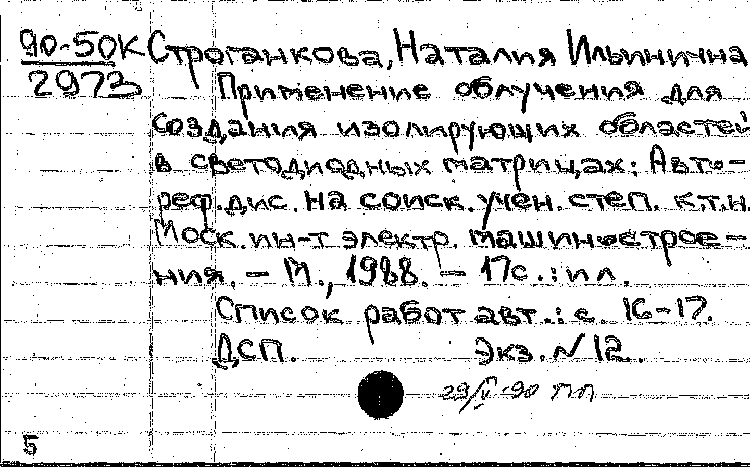 90-50К Строганкова, Наталия Ильинична
2973 Применение облучения для
создания изолирующих областей
в светодиодных матрицах: Авто-
реф. дис. на соиск. учен. степ. к.т.н.
Моск. ин-т электр. машинострое-
ния. – М., 1988. – 17с.: ил.
Список работ авт.: с. 16-17.
ДСП. Экз. N 12.
29/V-90 пп
5